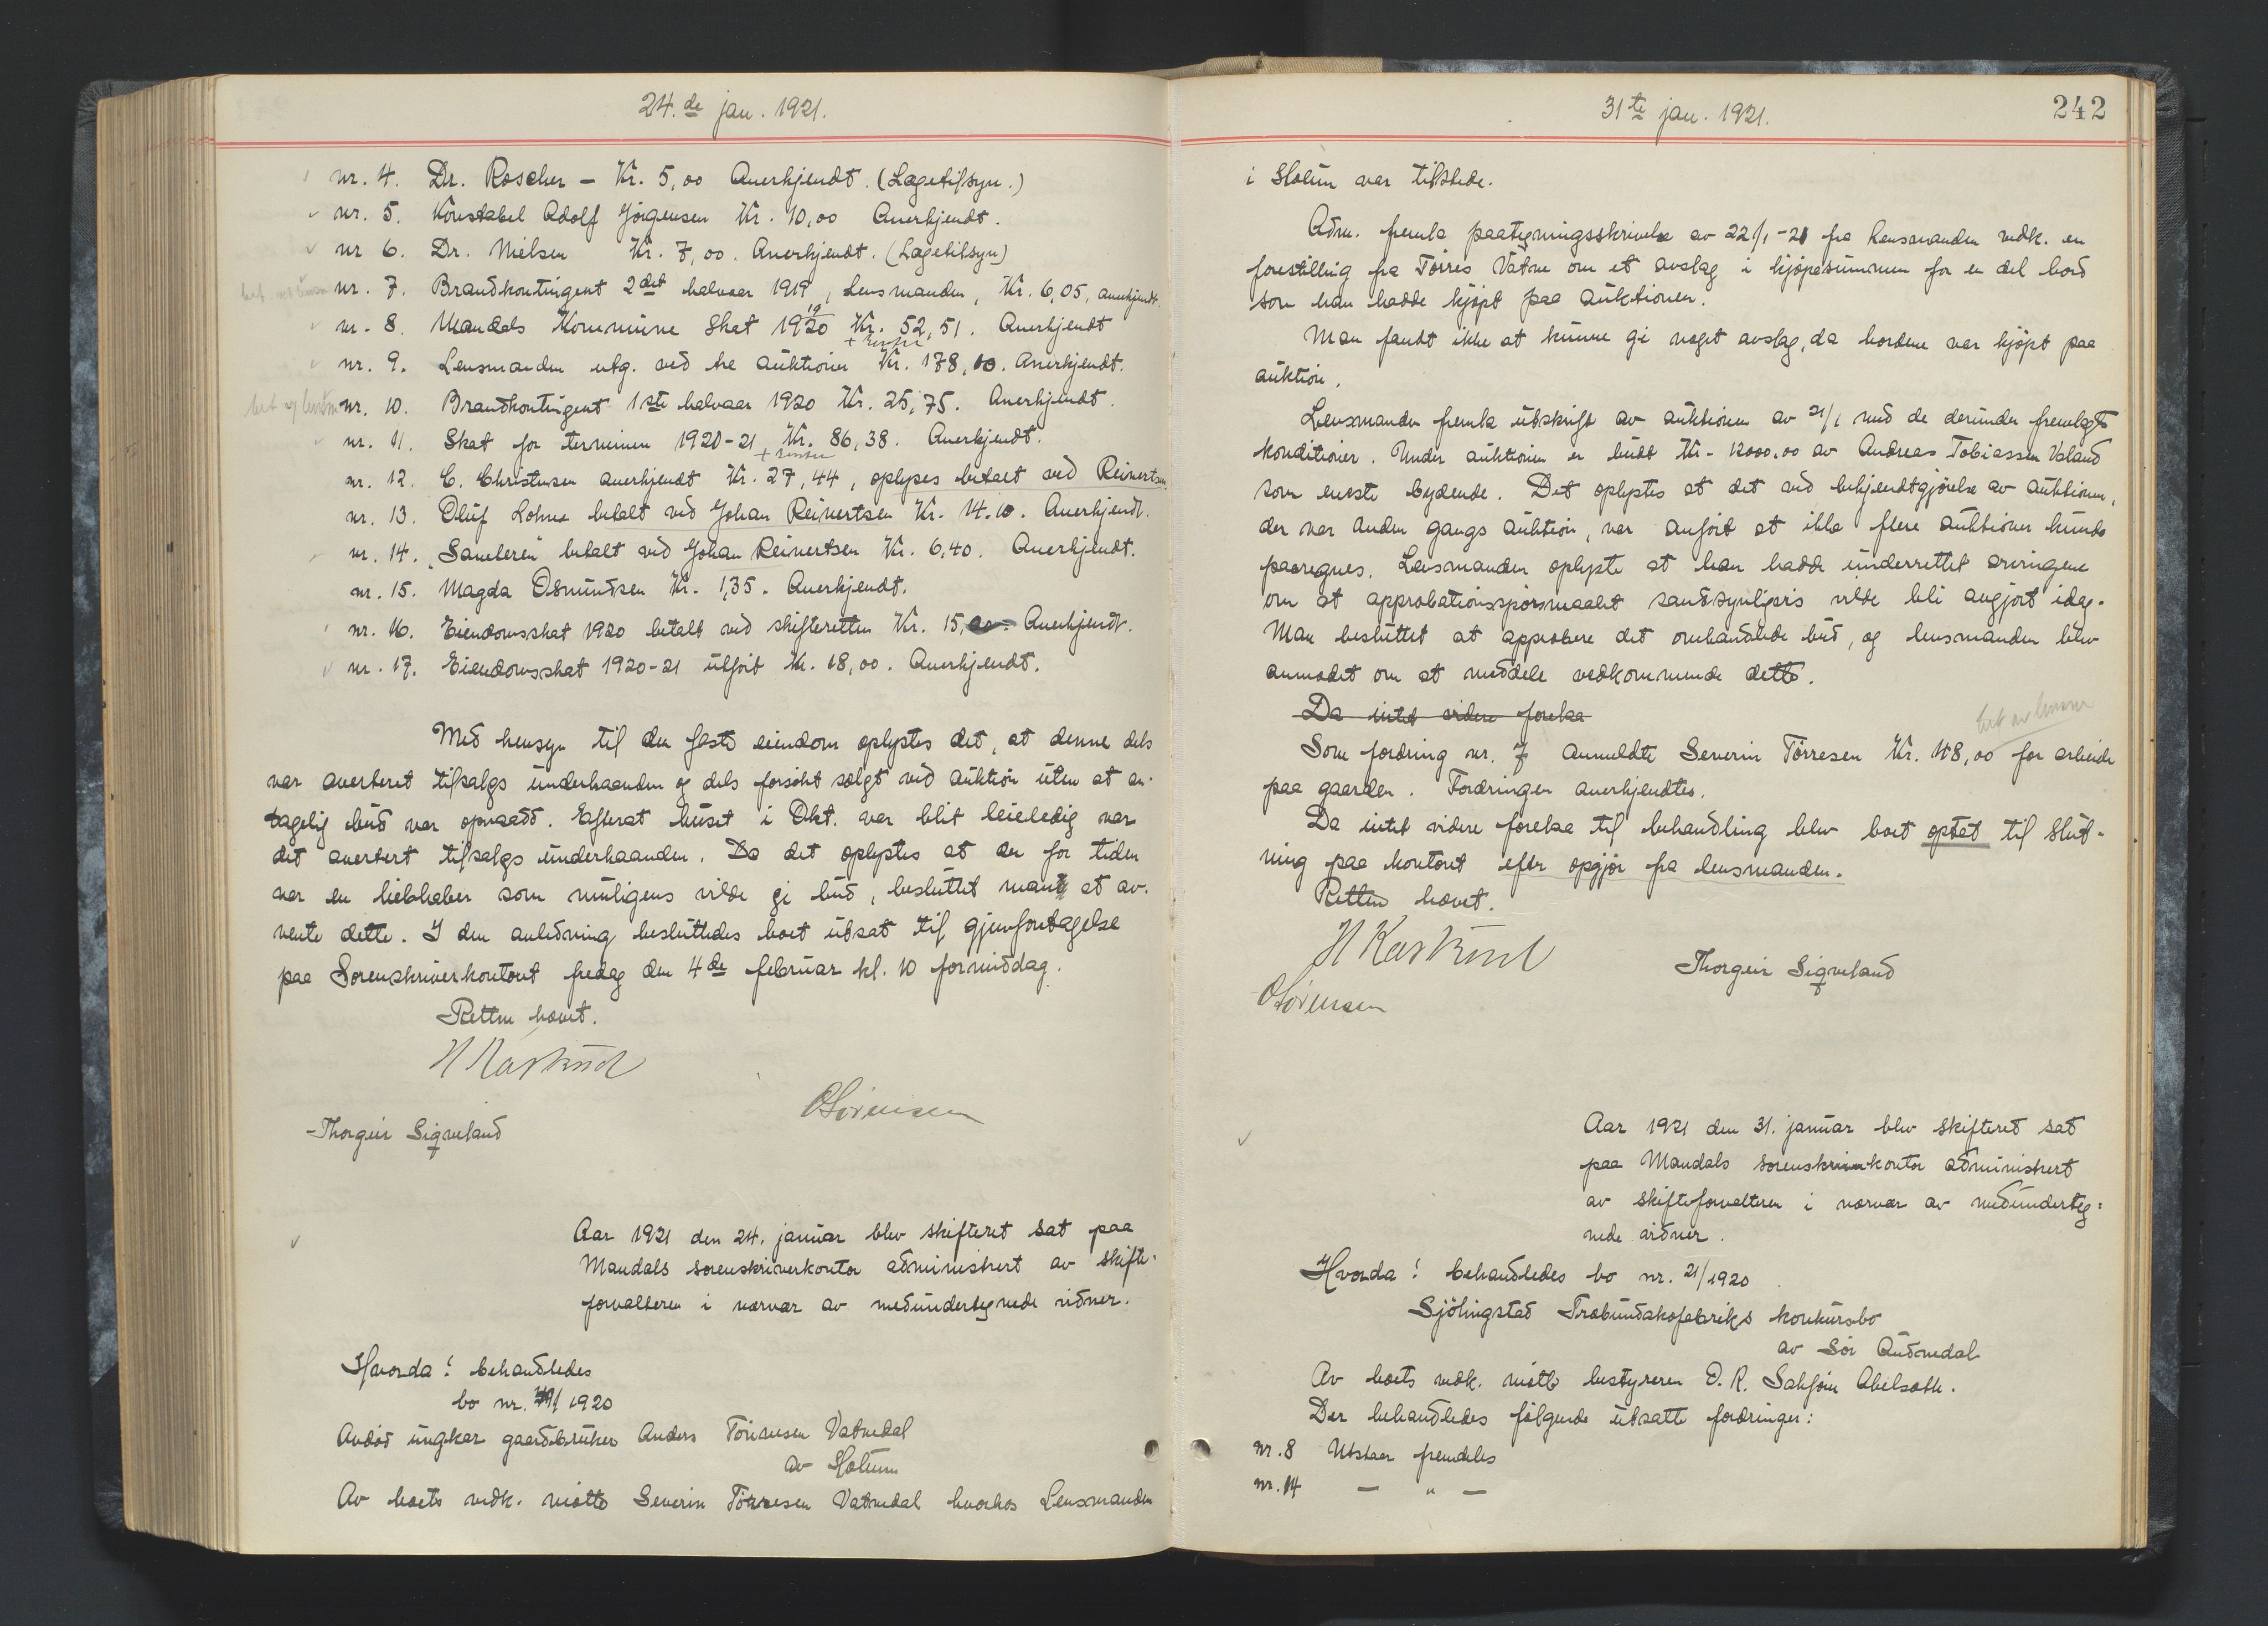 24.de jan. 1921.
nr. 4. Dr. Roscher - Kr. 5,00 Anerkjendt. (Lægetilsyn.)
nr. 5. Konstabel Adolf Jörgensen Kr. 10,00 Anerkjendt.
nr 6. Dr. Nielsen Kr. 7,00. Anerkjendt. (Lægetilsyn)
nr. 7. Brandkontingent 2det halvaar 1919, Lensmanden, Kr. 6,05, anerkjendt.
nr. 8. Mandals Kommune Skat 1920 Kr. 52,51. Anerkjendt
+ renter
nr. 9. Lensmanden utg. ved tre auktioner Kr. 178,10. Anerkjendt.
nr. 10. Brandkontingent 1ste halvaar 1920 Kr. 25,75. Anerkjendt.
nr. 11. Skat for terminen 1920-21 Kr. 86,38. Anerkjendt.
+ renter
nr. 12. C. Christensen anerkjendt Kr. 27,44, oplyses betalt ved Reinertsen.
nr. 13. Oluf Lohne betalt ved Johan Reinertsen Kr. 14.10. Anerkjendt.
nr. 14. "Samleren" betalt ved Johan Reinertsen Kr. 6,40. Anerkjendt.
nr. 15. Magda Osmundsen Kr. 1,35. Anerkjendt.
nr. 16. Eiendomsskat 1920 betalt ved skifteretten Kr. 15, Anerkjendt.
nr. 17. Eiendomsskat 1920-21 utgjort Kr. 18,00. Anerkjendt.
Med hensyn til den faste eiendom oplystes det, at denne dels
var averteret tilsalgs underhaanden og dels forsökt solgt ved auktion uten at an-
tagelig bud var opnaadd. Efterat huset i Okt. var blit leieledig var
det avertert tilsalgs underhaanden. Da det oplystes at der for tiden
var en liebhaber som muligens vilde gi bud, besluttet man at av-
vente dette. I den anledning besluttedes boet utsat til gjenforetagelse
paa Sorenskriverkontoret fredag den 4de februar kl. 10 formiddag.
Retten hævet.
H Kaskrud
O Sörensen
Thorgeir Sigveland
Aar 1921 den 24. januar blev skifteret sat paa
Mandals sorenskriverkontor administrert av skifte-
forvalteren i nærvær av medundertegnede vidner.
Hvorda: behandledes
bo nr. 1920
Avdöd ungkar gaardbruker Anders Törresen Vatnedal
av Holum
Av boets vedk. mötte Severin Törresen Vatnedal hvorhos Lensmanden
31te jan. 1921.
242
i Holum var tilstede.
Adm. fremla paategningsskrivelse av 22/1-21 fra Lensmanden vedk. en
forestilling fra Törres Vatne om et avslag i kjöpesummen for en del bord
som han hadde kjöpt paa auktionen.
Man fandt ikke at kunne gi noget avslag, da bordene var kjöpt paa
auktion.
Lensmanden fremla utskrift av auktionen av 21/1 med de derunder fremlagte
konditioner. Under auktionen er budt Kr. 12000,00 av Andreas Tobiassen Valand
som eneste bydende. Det oplystes at det ved bekjendtgjörelse av auktionen,
der var anden gangs auktion, var anfört at ikke flere auktioner kunde
paaregnes. Lensmanden oplyste at han hadde underrettet arvingene
om at approbationsspörsmaalet sandsynligvis vilde bli avgjort idag.
Man besluttet at approbere det omhandlede bud, og lensmanden blev
anmodet om at meddele vedkommende dette.
Da intet videre forelaa
Som fordring nr. 7 anmeldte Severin Törresen Kr. 48,00 for arbeide
paa gaarden. Fordringen anerkjendtes.
Da intet videre forelaa til behandling blev boet optat til slut-
ning paa kontoret efter opgjör fra lensmanden.
Retten hævet.
H Kaskrud
Thorgeir Sigveland
O Sörensen
Aar 1921 den 31. januar blev skifteret sat
paa Mandals sorenskriverkontor administrert
av skifteforvalteren i nærvær av medunderteg-
nede vidner.
Hvorda: behandledes bo nr. 21/1920
Sjölingstad Træbundskofabriks konkursbo
av Sör Audnedal
Av boets vedk. mötte bestyreren O. R. Sakförer Abelseth.
Der behandledes fölgende utsatte fordringer:
nr. 8 Utstaar fremdeles
nr. 14 - " -